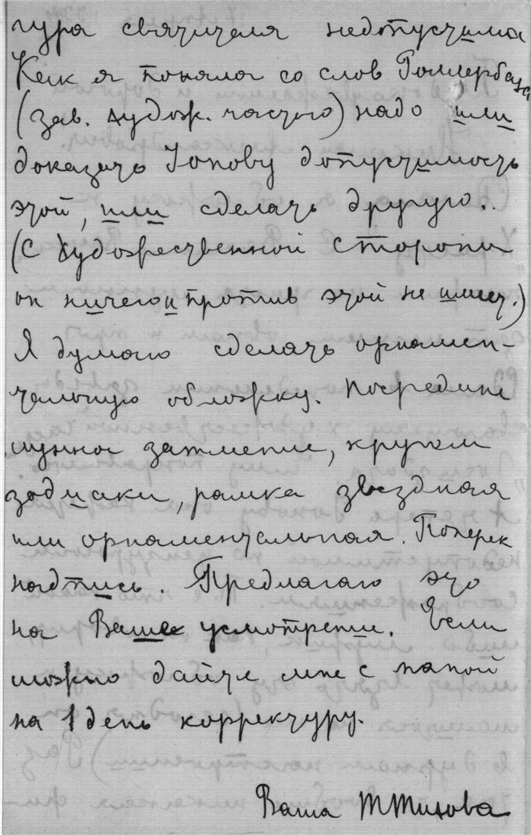 гура святителя недопустима
Как я поняла со слов Голлербаха
(зав. худож. частью) надо или
доказать Ионову допустимость
этой, или сделать другую..
(С художественной стороны
он ничего и против этой не имеет.)
Я думаю сделать орнамен-
тальную обложку. Посредине
лунное затмение, кругом
зодиаки, рамка звездная
или орнаментальная. Поперек
надпись. Предлагаю это
на Ваше усмотрение. Если
можно дайте мне с папой
на 1 день корректуру.
Ваша